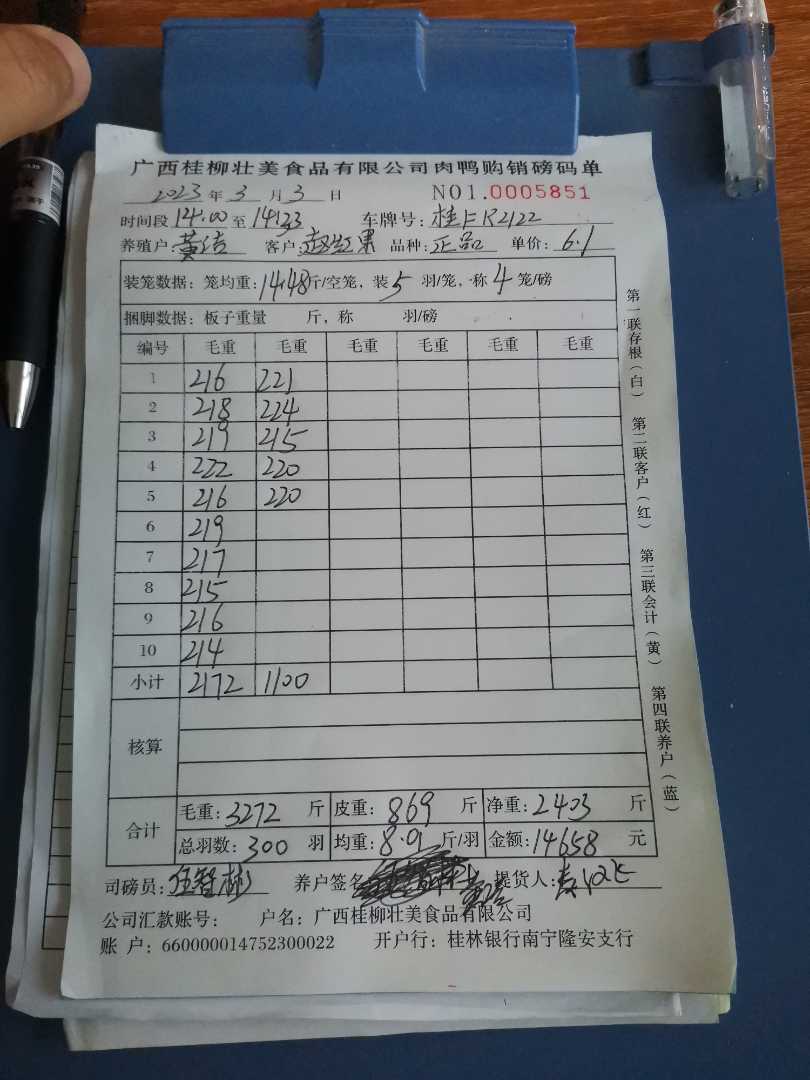 广西桂柳壮美食品有限公司肉鸭购销磅码单
2023年3月3日 NO1.0005851
时间段14:00至14:23 车牌号：桂FR2122
养殖户：黄洁 客户：赵红果 品种：正品 单价：6.1
装笼数据：笼均重：14.48斤/空笼，装5羽/笼，称4笼/磅
捆脚数据：板子重量 斤，称 羽/磅
编号 毛重 毛重 毛重 毛重 毛重 毛重
1 216 221
2 218 224
3 219 215
4 222 220
5 216 220
6 219
7 217
8 215
9 216
10 214
小计 2172 1100
核算
合计 毛重：3272斤 皮重：869斤 净重：2403斤
总羽数：300羽 均重：8.01斤/羽 金额：14658元
司磅员：伍智彬 养户签名：黄洁 提货人：
公司汇款账号： 户名：广西桂柳壮美食品有限公司
账 户：660000014752300022 开户行：桂林银行南宁隆安支行
第一联存根（白） 第二联客户（红） 第三联会计（黄） 第四联养户（蓝）